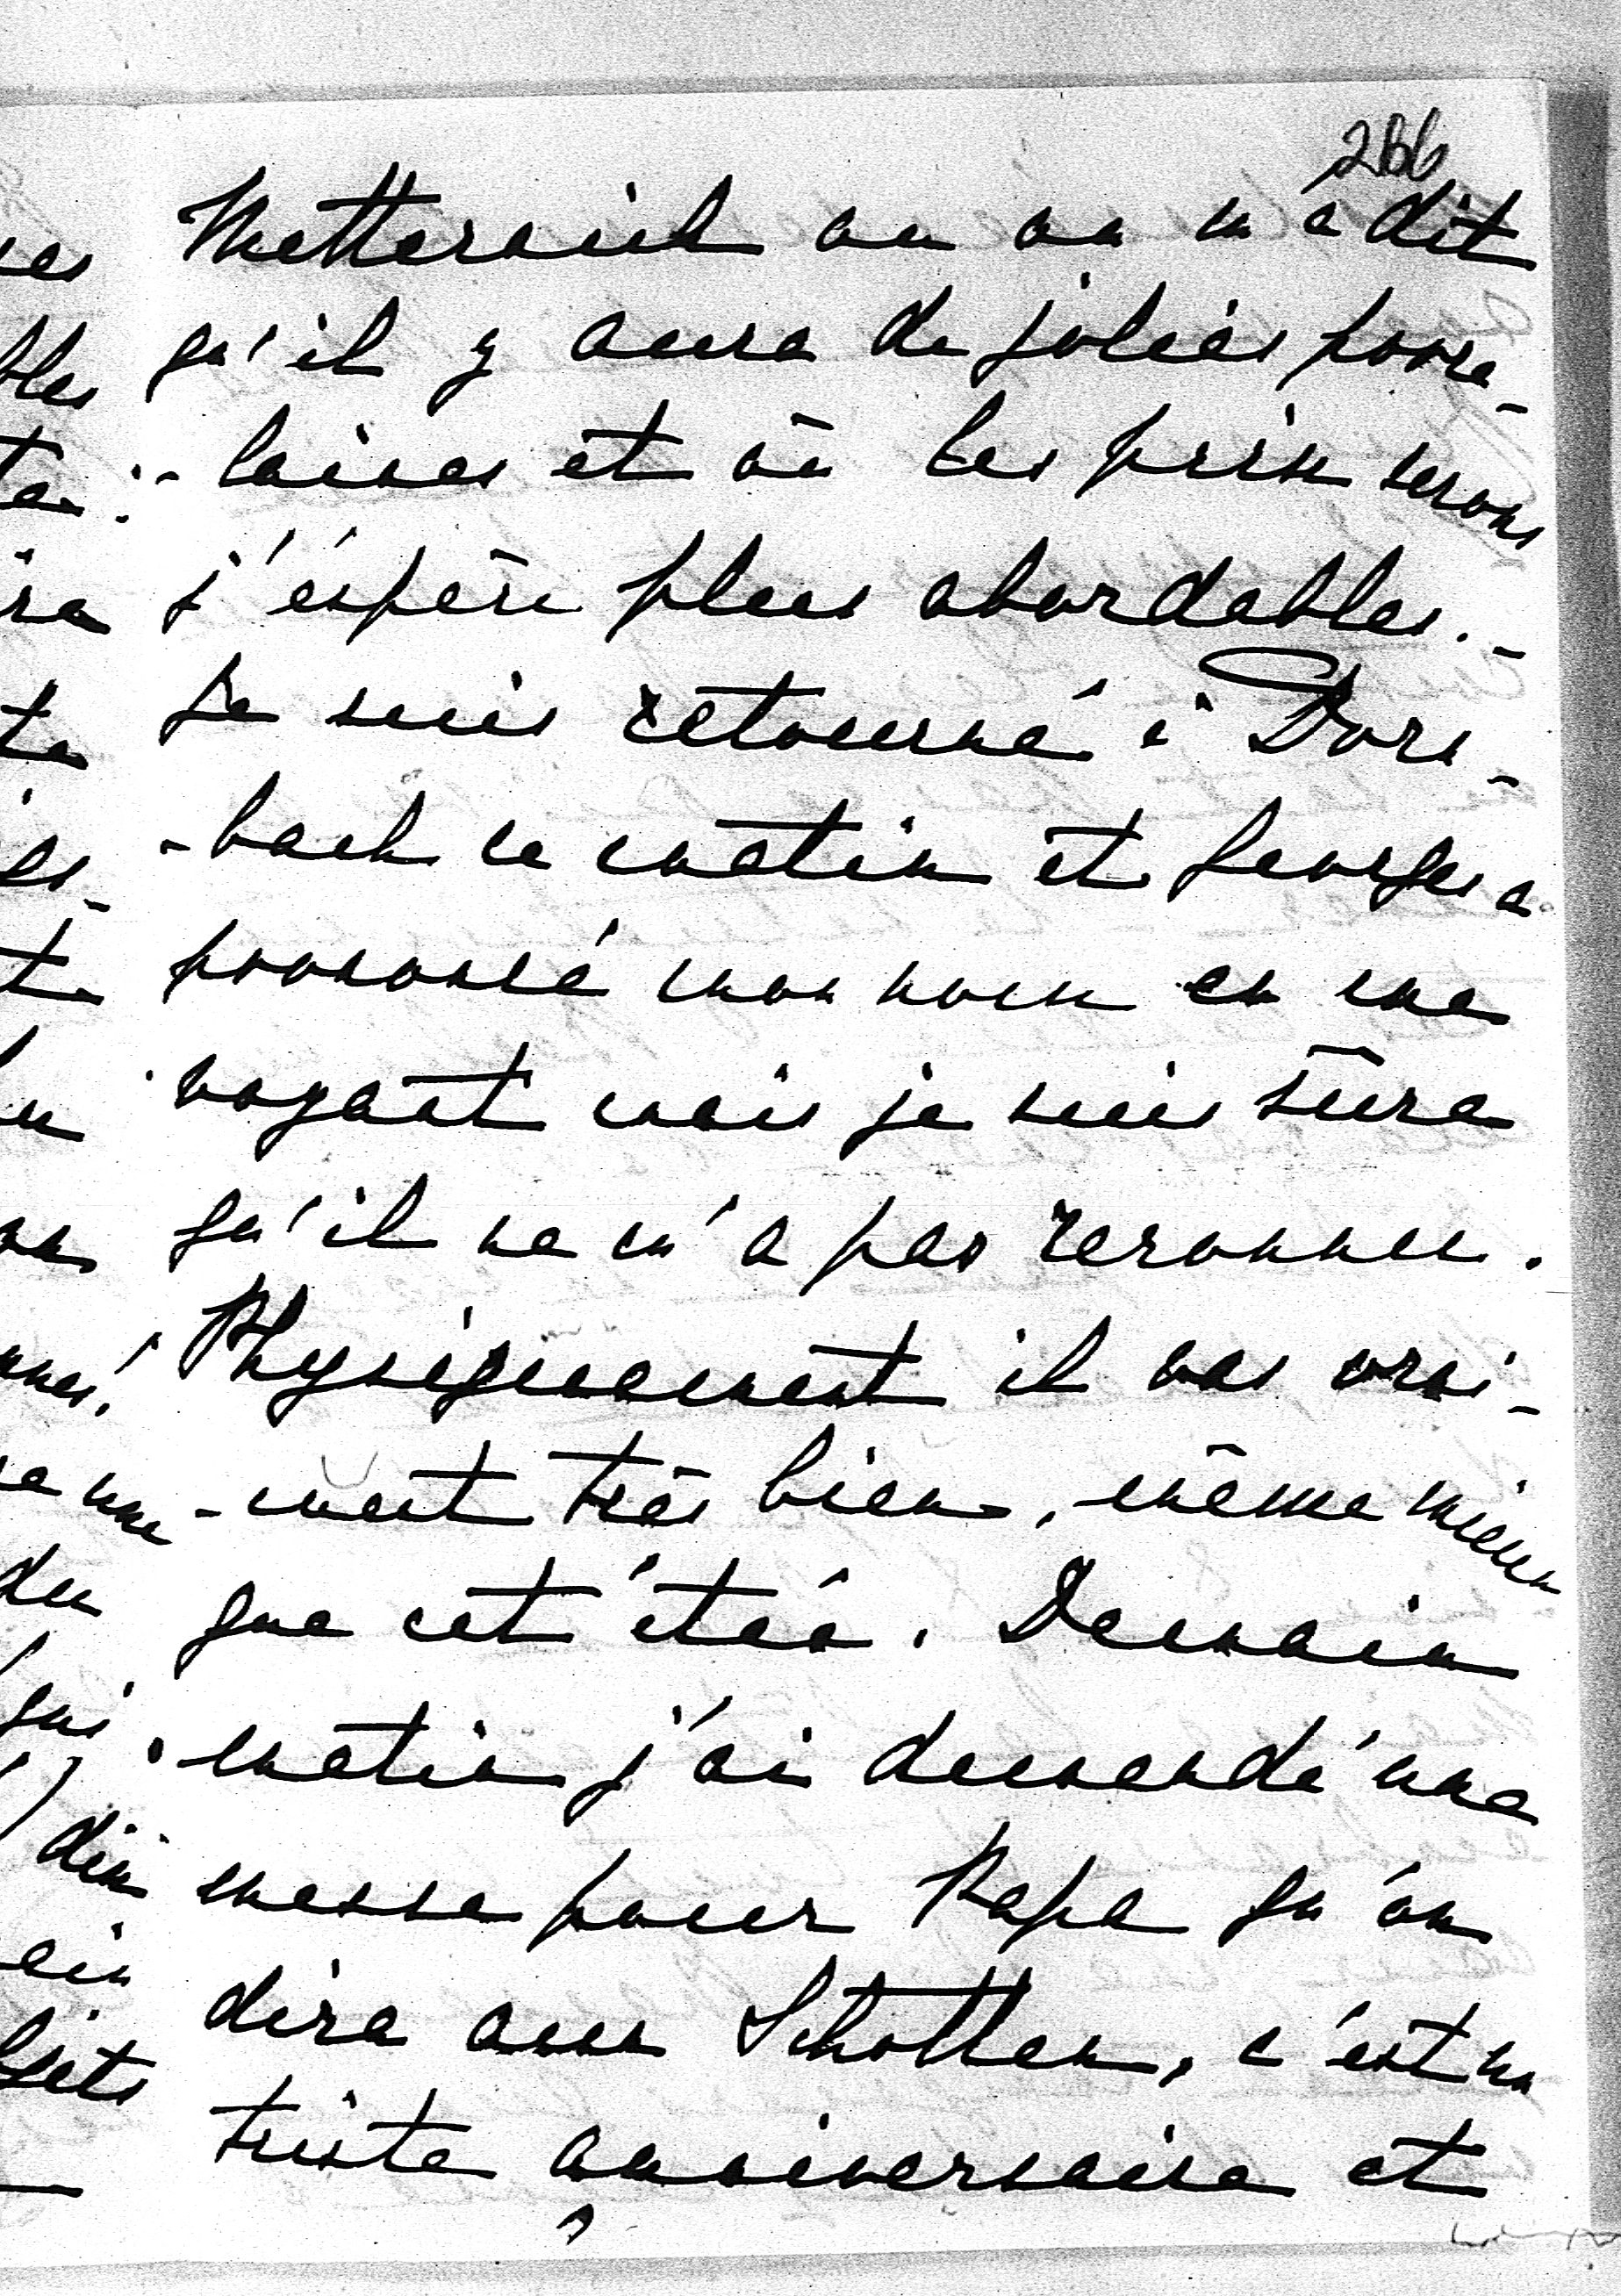 266
Metternich on on m'a dit
qu'il y aura de jolies porce-
-laines et où les prix serons
j'espère plus abordables.-
Je suis retourné à Dorn-
-bach ce matin et Georges a
prononcé mon nom en me
voyant mais je suis sûre
qu'il ne m'a pas reconnue.
Physiquement il vas vrai-
-ment très bien, même mieux
que cet étéé. Demain
matin j'ai demandé une
messe pour Papa qu'on
dira aux Schotten, c'est un
triste anniversaire et